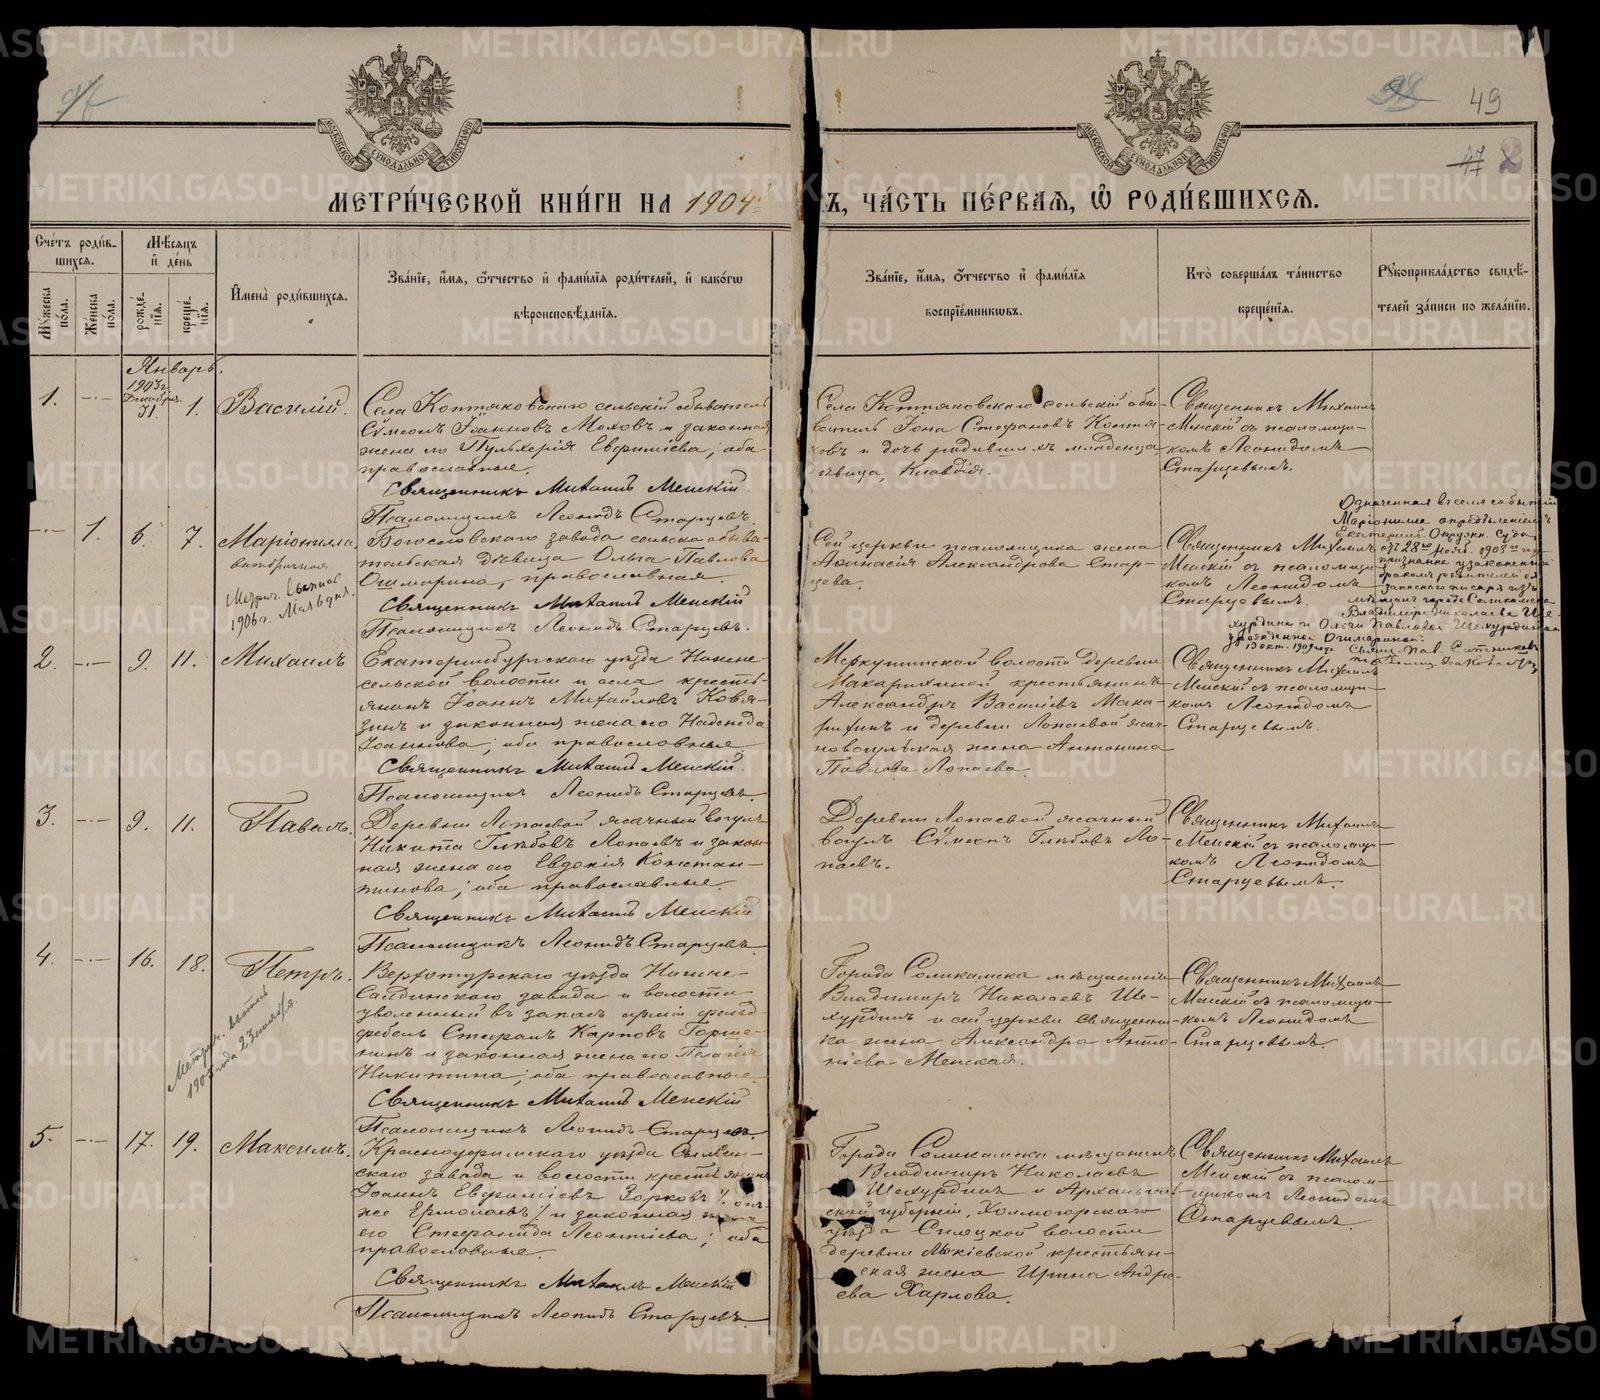 49
47 2
МЕТРИ́ЧЕСКОЙ КНИ́ГИ НА 1904 Ъ, ЧА́СТЬ ПЕ́РВАѦ, Ѡ҆ РОДИ́ВШИХСѦ.
МОСКОВСКОЙ СѴНОДАЛЬНОЙ ТИПОГРАФІИ
МОСКОВСКОЙ СѴНОДАЛЬНОЙ ТИПОГРАФІИ
Сче́тъ роди́в-шихся.
Мꙋ́жеска по́ла.
Же́нска по́ла.
Мѣ́сяцъ и҆ де́нь
рожде́-нїя.
креще́-нїя.
И҆мена̀ роди́вшихся.
Зва́нїе, и҆́мя, ѻ҆́тчество и҆ фами́лїя роди́телей, и҆ како́гѡ
вѣроисповѣ́данїя.
Зва́нїе, и҆́мя, ѻ҆́тчество и҆ фами́лїя
воспрїе́мникѡвъ.
Кто̀ соверша́лъ та́инство
креще́нїя.
Рꙋкоприкла́дство свидѣ́-
телей за́писи по жела́нїю.
Январь.
1903 г.
Декабря
31. 1.
1. Василій.
Села Коптяковскаго сельскій обыватель
Сѵмеонъ Іоанновъ Мохов и законная
жена его Пульхерія Евфиміева, оба
православные.
Священникъ Михаилъ Менскій
Псаломщикъ Леонидъ Старцевъ.
Села Коптяковскаго сельскій обы-
ватель Іона Стефановъ Коптя-
ковъ и дочь родившихъ младенца
дѣвица, Клавдія.
Священникъ Михаилъ
Менскій съ псаломщи-
комъ Леонидомъ
Старцевымъ.
1. 6. 7. Маріонилла,
внѣбрачная
Богословскаго завода сельско-обыва-
тельская дѣвица Ольга Павлова
Ошмарина, православная.
Священникъ Михаилъ Менскій
Псаломщикъ Леонидъ Старцевъ.
Сей церкви псаломщика жена
Аѳанасія Александрова Стар-
цева.
Священникъ Михаилъ
Менскій съ псаломщи-
комъ Леонидомъ
Старцевымъ.
Означенная въ семъ событіи
Маріонилла опредѣленіемъ
Екатеринб. Окружн. Суда
признана узаконенной
Владиміра Николаева Ше-
хурдина и Ольги Павловой Шехурдиной
урожденной Ошмариной.
2. 9. 11. Михаилъ
Екатеринбургскаго уѣзда Нижне-
сельской волости и села кресть-
янинъ Іоаннъ Михайловъ Ковя-
зинъ и законная жена его Надежда
Іоаннова, оба православные.
Священникъ Михаилъ Менскій.
Псаломщикъ Леонидъ Старцевъ.
Меркушинской волости деревни
Макарихиной крестьянинъ
Александръ Василіевъ Мака-
рихинъ и деревни Лопаевой ясач-
новогульская жена Антонина
Павлова Лопаева.
Священникъ Михаилъ
Менскій съ псаломщи-
комъ Леонидомъ
Старцевымъ.
3. 9. 11. Павелъ.
Деревни Лопаевой ясачный вогулъ
Никита Глѣбовъ Лопаевъ и закон-
ная жена его Евдокія Констан-
тинова; оба православные.
Священникъ Михаилъ Менскій
Псаломщикъ Леонидъ Старцевъ
Деревни Лопаевой ясачный
вогулъ Сѵмеонъ Глѣбовъ Ло-
паевъ.
Священникъ Михаилъ
Менскій съ псаломщи-
комъ Леонидомъ
Старцевымъ.
4. 16. 18. Петръ.
Верхотурскаго уѣзда Нижне-
Салдинскаго завода и волости
уволенный въ запасъ арміи фельд-
фебель Стефанъ Карповъ Горше-
нинъ и законная жена его Пелагія
Никитина; оба православные.
Священникъ Михаилъ Менскій
Псаломщикъ Леонидъ Старцевъ.
Города Соликамска мѣщанинъ
Владимиръ Николаевъ Ше-
хурдинъ и сей церкви священни-
ка жена Александра Анто-
ніева Менская.
Священникъ Михаилъ
Менскій съ псаломщи-
комъ Леонидомъ
Старцевымъ.
5. 17. 19. Максимъ.
Красноуфимскаго уѣзда Сылвен-
скаго завода и волости крестьянинъ
Іоаннъ Евфиміевъ Зорковъ / онъ
же Ермолаевъ / и законная жена
его Стефанида Леонтіева; оба
православные.
Священникъ Михаилъ Менскій
Псаломщикъ Леонидъ Старцевъ.
Города Соликамска мѣщанинъ
Владимиръ Николаевъ
Шехурдинъ и Архангель-
ской губерніи, Холмогорскаго
уѣзда волости
деревни крестьян-
ская жена Ирина Андре-
ева Харлова.
Священникъ Михаилъ
Менскій съ псалом-
щикомъ Леонидомъ
Старцевымъ.
METRIKI.GASO-URAL.RU